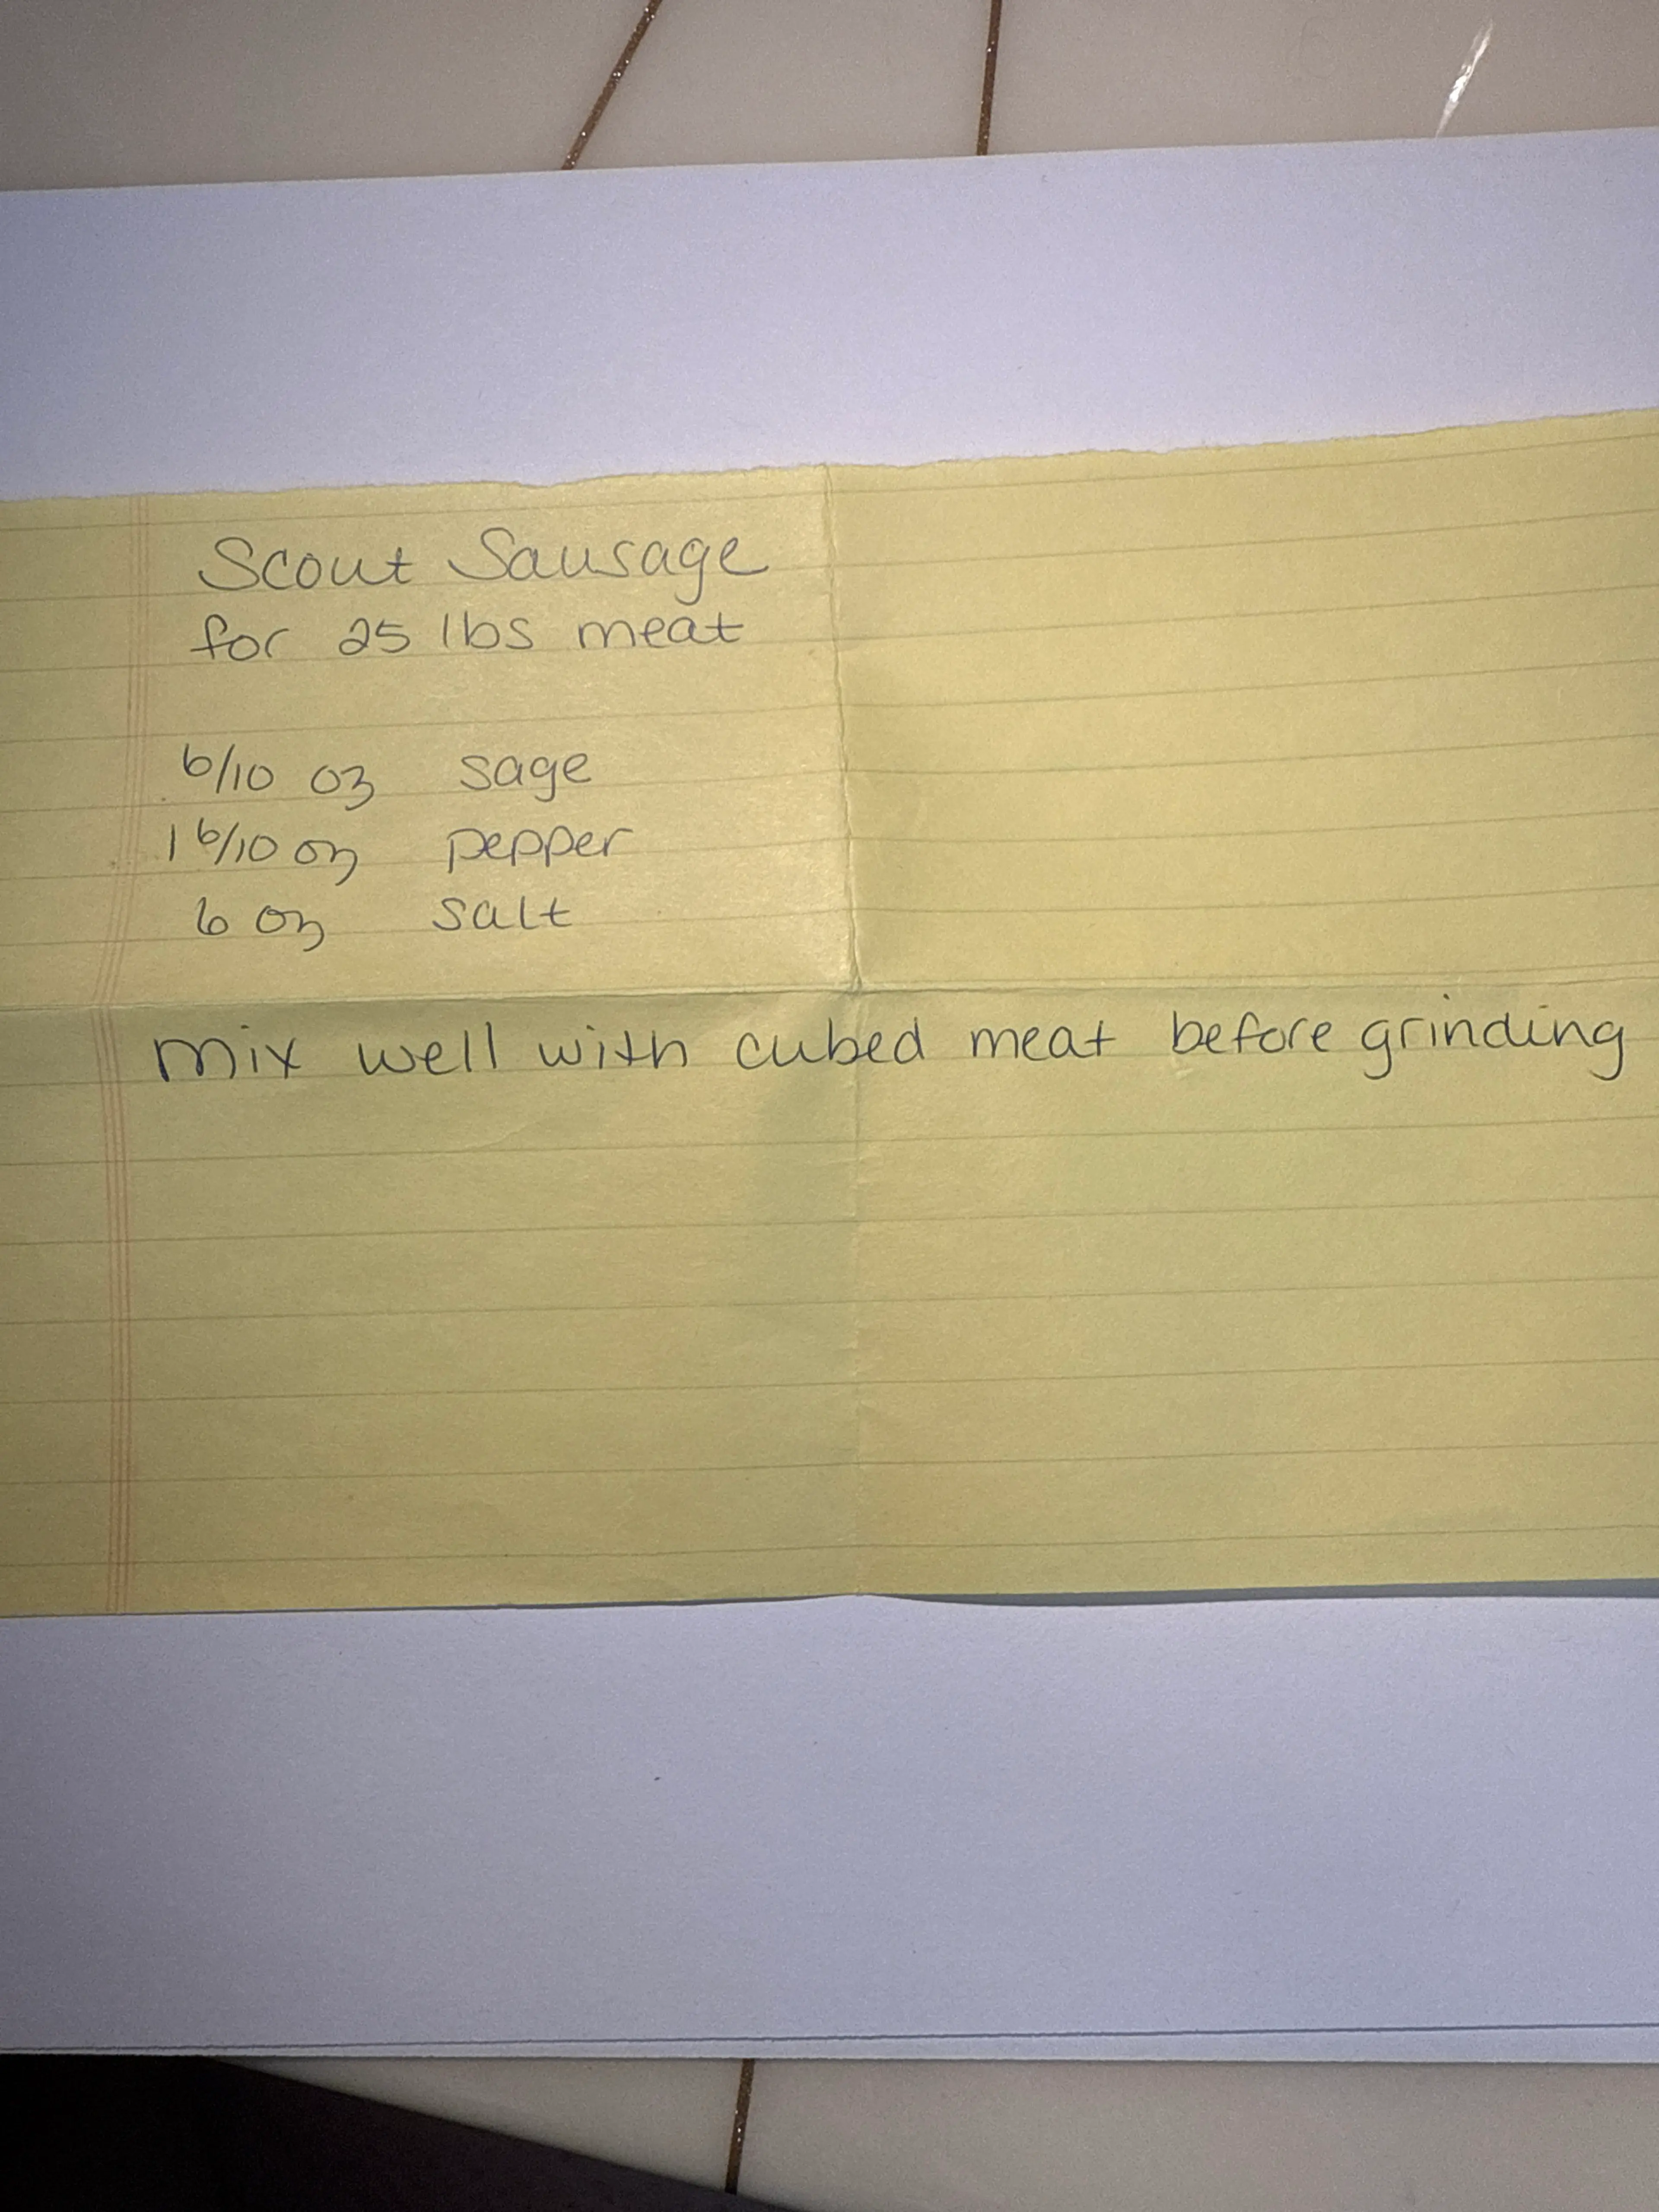 Scout Sausage
for 25 lbs meat
6/10 oz sage
1 6/10 oz pepper
6 oz salt
mix well with cubed meat before grinding